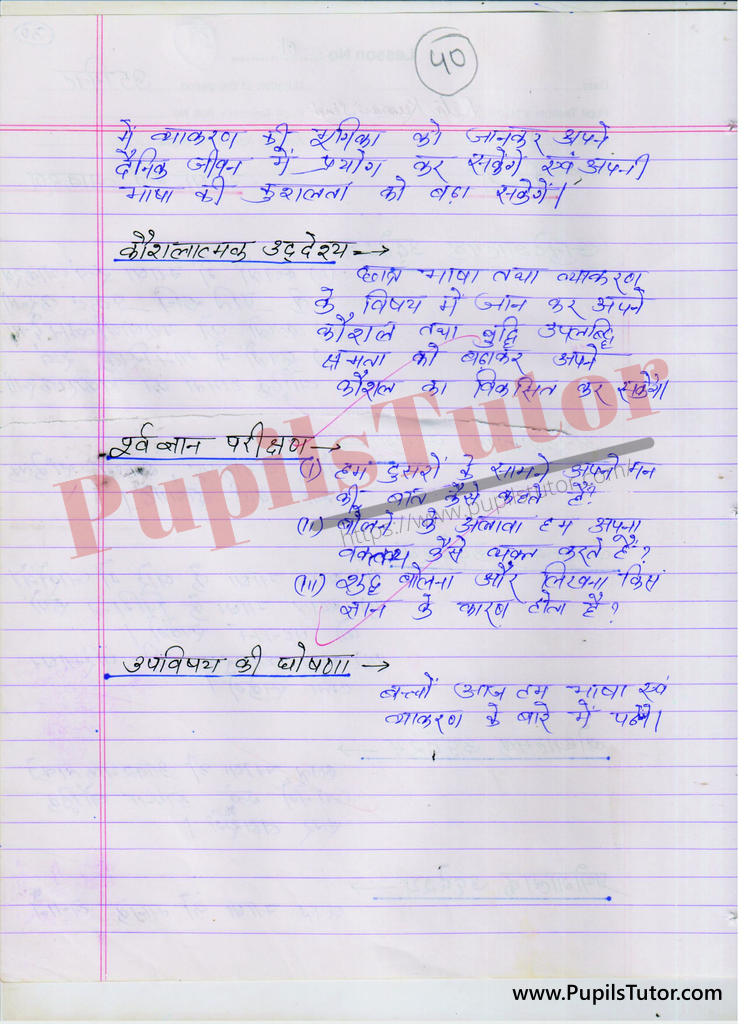 40
में व्याकरण की भूमिका को जानकर अपने
दैनिक जीवन में प्रयोग कर सकेंगे एवं अपनी
भाषा की कुशलता को बढ़ा सकेगें।
कौशलात्मक उद्देश्य →
छात्र भाषा तथा व्याकरण
के विषय में जान कर अपने
कौशल तथा बुद्धि उपलब्धि
क्षमता को बढाकर अपने
कौशल का विकसित कर सकेंगे।
पूर्व ज्ञान परीक्षण →
(i) हम दुसरों के सामने अपने मन
की बात कैसे कहते हैं?
(ii) बोलने के अलावा हम अपना
वक्तव्य कैसे व्यक्त करते हैं?
(iii) शुद्ध बोलना और लिखना किस
ज्ञान के कारण होता है?
उपविषय की घोषणा →
बच्चों आज हम भाषा एवं
व्याकरण के बारे में पढेंगे।
PupilsTutor
https://www.pupilstutor.com/
www.PupilsTutor.com